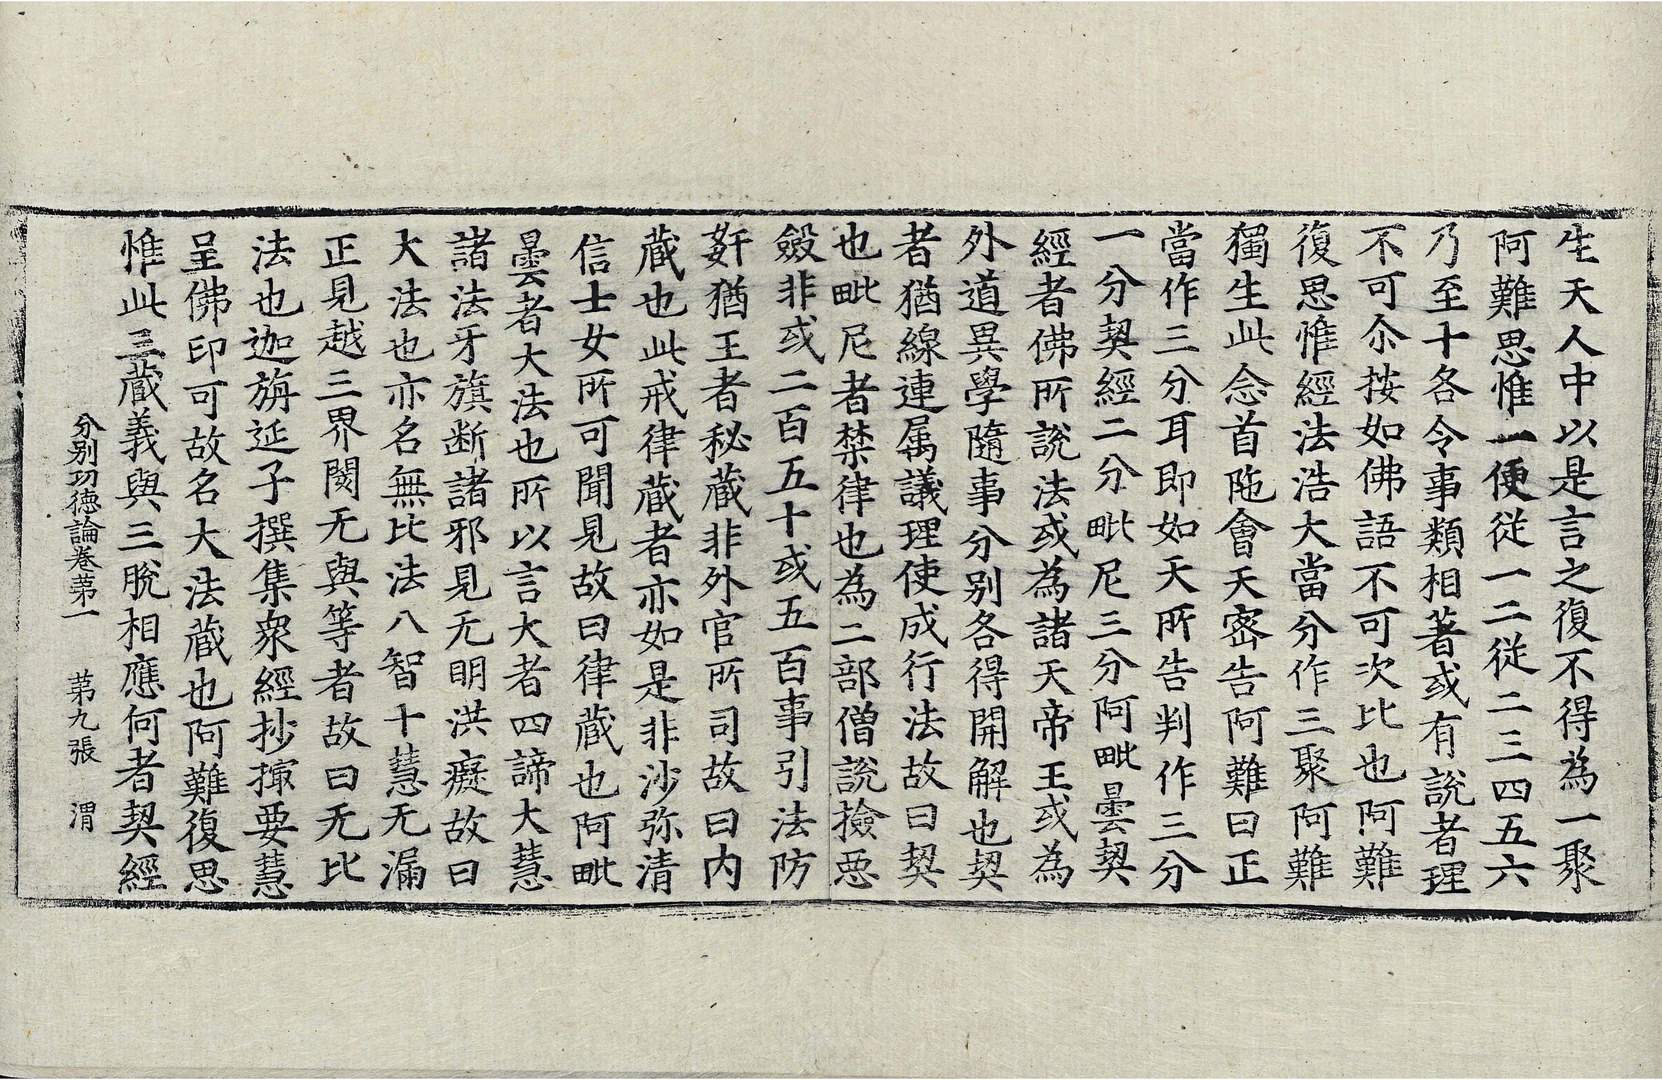 生天人中以是言之復不得為一聚
阿難思惟一便從一二從二三四五六
乃至十各令事類相著或有說者理
不可尒按如佛語不可次比也阿難
復思惟經法浩大當分作三聚阿難
獨生此念首陁會天密告阿難曰正
當作三分耳即如天所告判作三分
一分契經二分毗尼三分阿毗曇契
經者佛所說法或為諸天帝王或為
外道異學隨事分別各得開解也契
者猶線連属議理使成行法故曰契
也毗尼者禁律也為二部僧說撿惡
斂非或二百五十或五百事引法防
姧猶王者秘藏非外官所司故曰內
藏也此戒律藏者亦如是非沙弥清
信士女所可聞見故曰律藏也阿毗
曇者大法也所以言大者四諦大慧
諸法牙旗断諸邪見无明洪癡故曰
大法也亦名無比法八智十慧无漏
正見越三界閡无與等者故曰无比
法也迦旃延子撰集衆經抄撮要慧
呈佛印可故名大法藏也阿難復思
惟此三藏義與三脫相應何者契經
分別功德論卷第一　第九張　渭